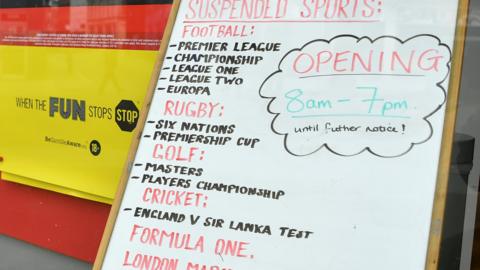 SUSPENDED SPORTS:
FOOTBALL:
- PREMIER LEAGUE
- CHAMPIONSHIP
- LEAGUE ONE
- LEAGUE TWO
- EUROPA
RUGBY:
- SIX NATIONS
- PREMIERSHIP CUP
GOLF:
- MASTERS
- PLAYERS CHAMPIONSHIP
CRICKET:
- ENGLAND V SIR LANKA TEST
FORMULA ONE.
LONDON
OPENING
8am - 7pm.
until futher notice!
WHEN THE FUN STOPS STOP
BeGambleAware
18+